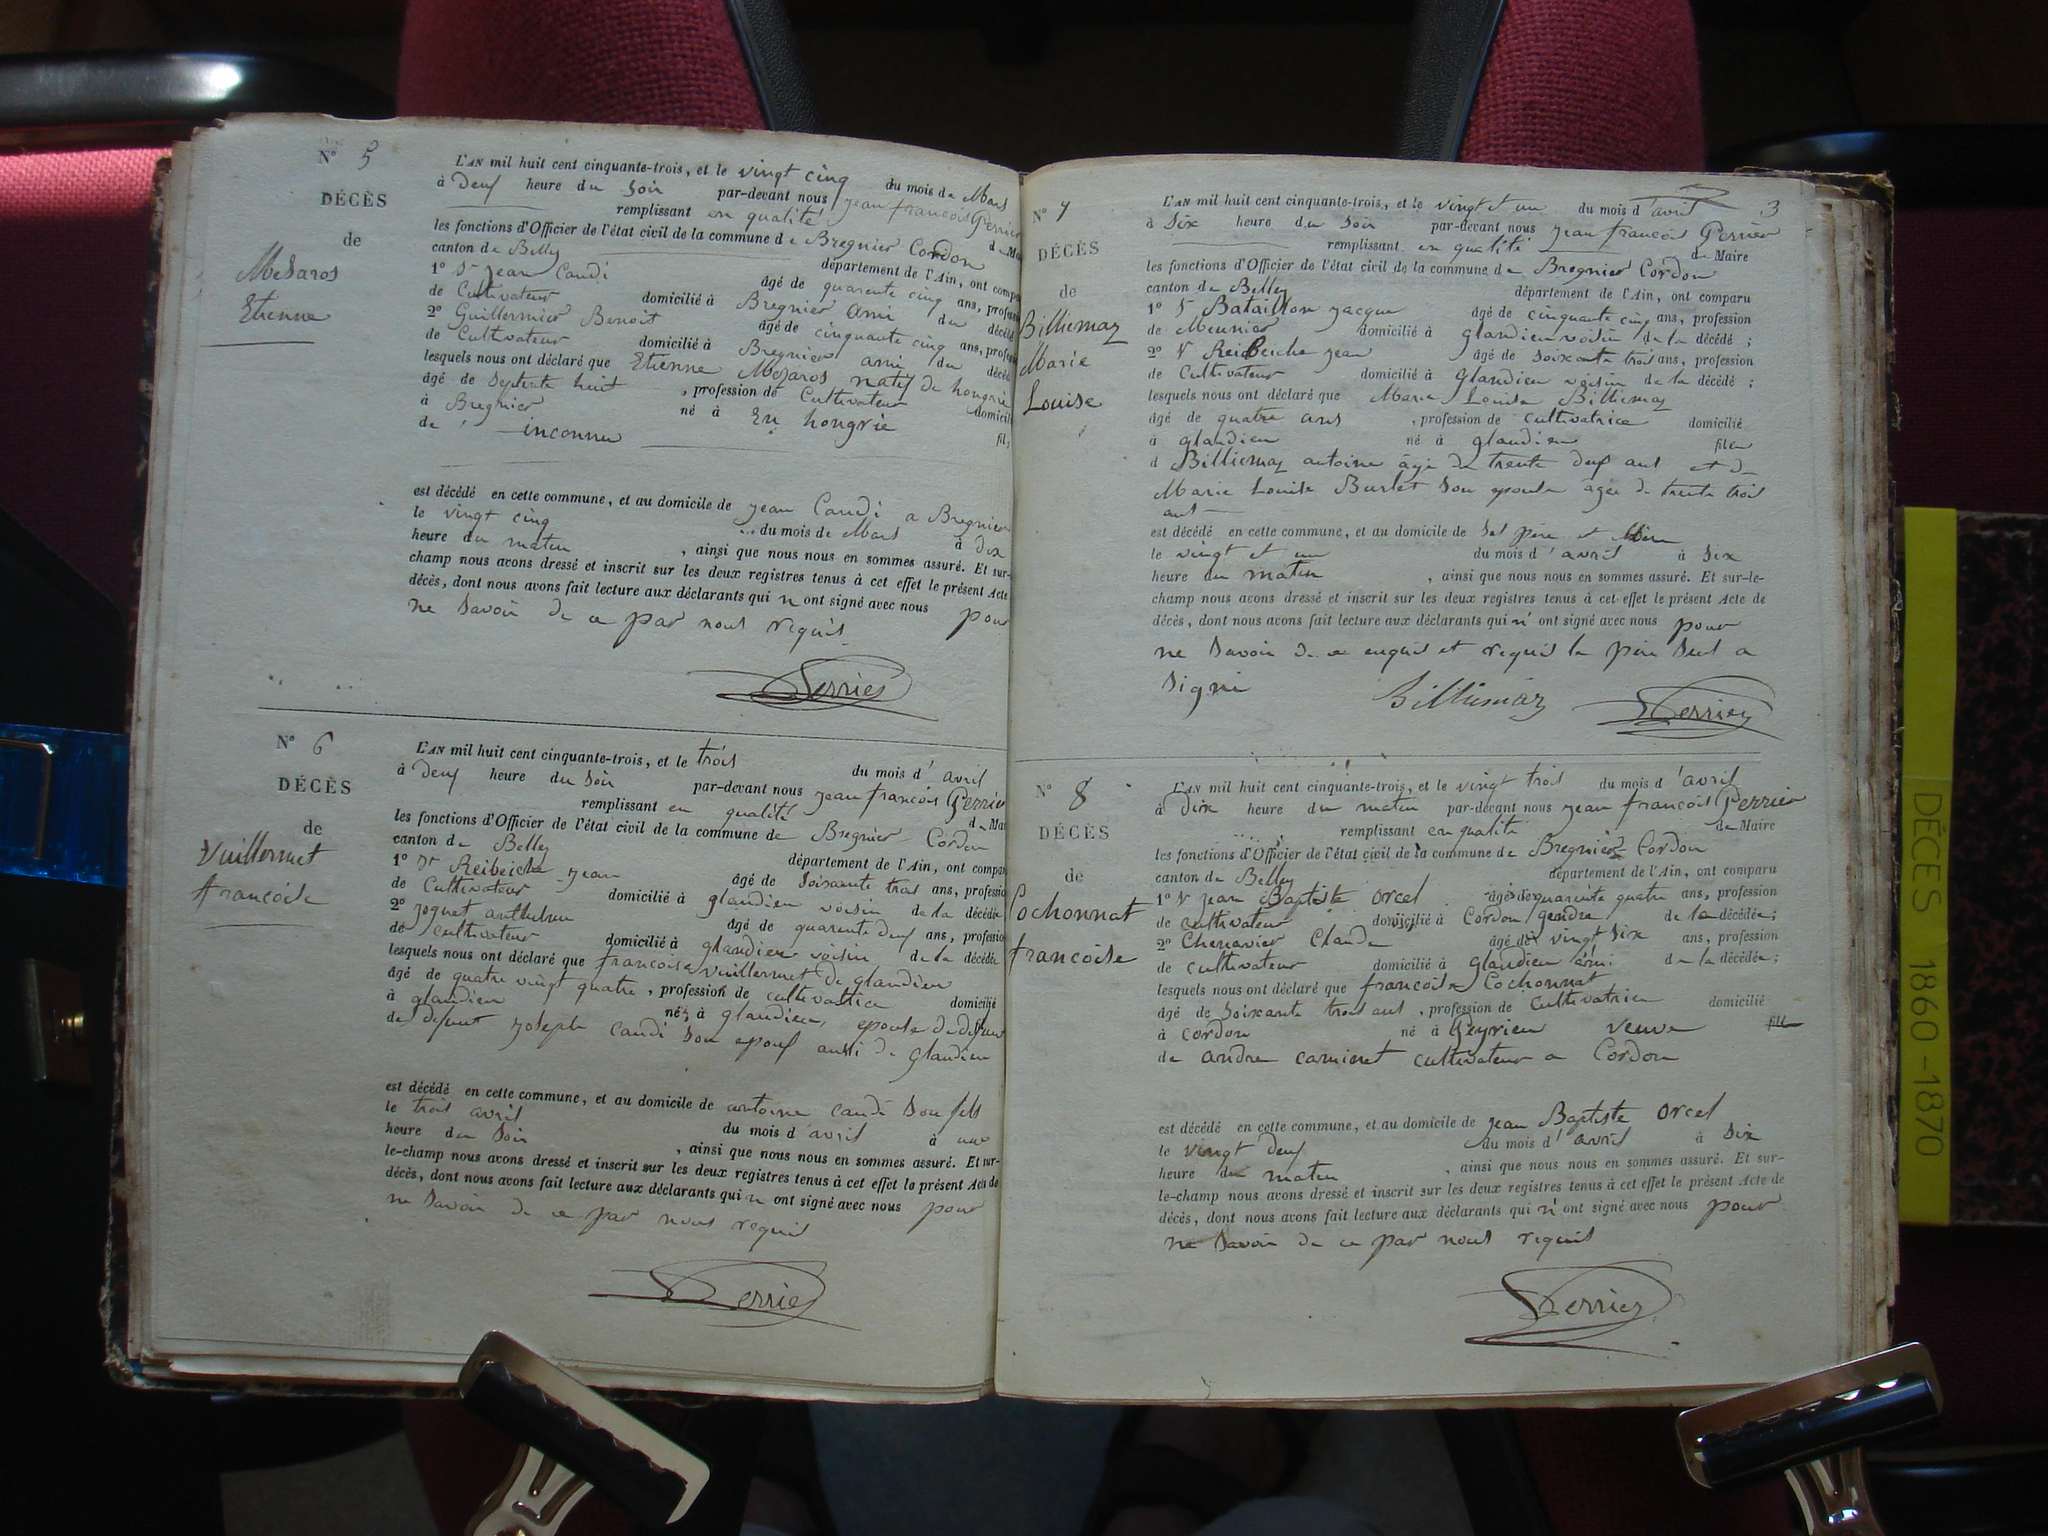 N° 5
DÉCÈS
de
Mesaros
Etienne
L'AN mil huit cent cinquante-trois, et le vingt cinq du mois de Mars
à deux heure du soir par-devant nous jean françois Perrier
remplissant en qualité d Mai
les fonctions d'Officier de l'état civil de la commune de Bregnier Cordon
canton de Belley département de l'Ain, ont compa
1° Sr jean Candi âgé de quarente cinq ans, profess
de Cultivateur domicilié à Bregnier ami du décédé
2° Guillermier Benoit âgé de cinquante cinq ans, profess
de Cultivateur domicilié à Bregnier ami du décéd
lesquels nous ont déclaré que Etienne Mesaros natif de hongrie
âgé de septente huit , profession de Cultivateur domicili
à Bregnier né à En hongrie fils
de inconnu
est décédé en cette commune, et au domicile de jean Candi a Bregnier
le vingt cinq du mois de Mars à dix
heure du matin , ainsi que nous nous en sommes assuré. Et sur-
champ nous avons dressé et inscrit sur les deux registres tenus à cet effet le présent Acte
décès, dont nous avons fait lecture aux déclarants qui n ont signé avec nous pour
ne savoir de ce par nous requis
Perrier
N° 6
DÉCÈS
de
Vuillermet
françoise
L'AN mil huit cent cinquante-trois, et le trois du mois d' avril
à deux heure du soir par-devant nous jean françois Perrier
remplissant en qualité d Mai
les fonctions d'Officier de l'état civil de la commune de Bregnier Cordon
canton de Belley département de l'Ain, ont compar
1° Sr Reibeiche jean âgé de soixante trois ans, professio
de Cultivateur domicilié à glandieu voisin de la décédée
2° joguet anthelme âgé de quarente deux ans, professio
de cultivateur domicilié à glandieu voisin de la décédée
lesquels nous ont déclaré que françoise vuillermet de glandieu
âgé de quatre vingt quatre , profession de cultivatrice domicilié
à glandieu né à glandieu, epouse de defunt
de defunt joseph Candi son epoux aussi de glandieu
est décédé en cette commune, et au domicile de antoine candi son fils
le trois avril du mois d avril à une
heure du soir , ainsi que nous nous en sommes assuré. Et sur-
le-champ nous avons dressé et inscrit sur les deux registres tenus à cet effet le présent Acte de
décès, dont nous avons fait lecture aux déclarants qui n ont signé avec nous pour
ne savoir de ce par nous requis
Perrier
3
N° 7
DÉCÈS
de
Billiemaz
Marie
Louise
L'AN mil huit cent cinquante-trois, et le vingt et un du mois d' avril
à six heure du soir par-devant nous jean françois Perrier
remplissant en qualité de Maire
les fonctions d'Officier de l'état civil de la commune de Bregnier Cordon
canton de Belley département de l'Ain, ont comparu
1° Sr Bataillon jacque âgé de cinquante cinq ans, profession
de Meunier domicilié à glandieu voisin de la décédé ;
2° Sr Reibeiche jean âgé de soixante trois ans, profession
de Cultivateur domicilié à glandieu voisin de la décédé ;
lesquels nous ont déclaré que Marie Louise Billiemaz
âgé de quatre ans , profession de cultivatrice domicilié
à glandieu né à glandieu fille
d Billiemaz antoine âgé de trente deux ans et de
Marie Louise Burlet son epouse agée de trente trois
ans
est décédé en cette commune, et au domicile de ses père et Mère
le vingt et un du mois d' avril à six
heure du matin , ainsi que nous nous en sommes assuré. Et sur-le-
champ nous avons dressé et inscrit sur les deux registres tenus à cet effet le présent Acte de
décès, dont nous avons fait lecture aux déclarants qui n' ont signé avec nous pour
ne savoir de ce enquis et requis le père seul a
signé
Billiemaz Perrier
N° 8
DÉCÈS
de
Cochonnat
francoise
L'AN mil huit cent cinquante-trois, et le vingt trois du mois d' avril
à dix heure du matin par-devant nous jean françois Perrier
remplissant en qualité de Maire
les fonctions d'Officier de l'état civil de la commune de Bregnier Cordon
canton de Belley département de l'Ain, ont comparu
1° Sr jean Baptiste orcel âgé de quarente quatre ans, profession
de cultivateur domicilié à Cordon gendre de la décédée ;
2° Chenavier Claude âgé de vingt six ans, profession
de cultivateur domicilié à glandieu ami de la décédée ;
lesquels nous ont déclaré que françoise Cochonnat
âgé de soixante trois ans , profession de Cultivatrice domicilié
à cordon né à Peyrieu veuve fill
de andre caminet cultivateur a Cordon
est décédé en cette commune, et au domicile de jean Baptiste orcel
le vingt deux du mois d' avril à six
heure du matin , ainsi que nous nous en sommes assuré. Et sur-
le-champ nous avons dressé et inscrit sur les deux registres tenus à cet effet le présent Acte de
décès, dont nous avons fait lecture aux déclarants qui n' ont signé avec nous pour
ne savoir de ce par nous requis
Perrier
DÉCES 1860-1870